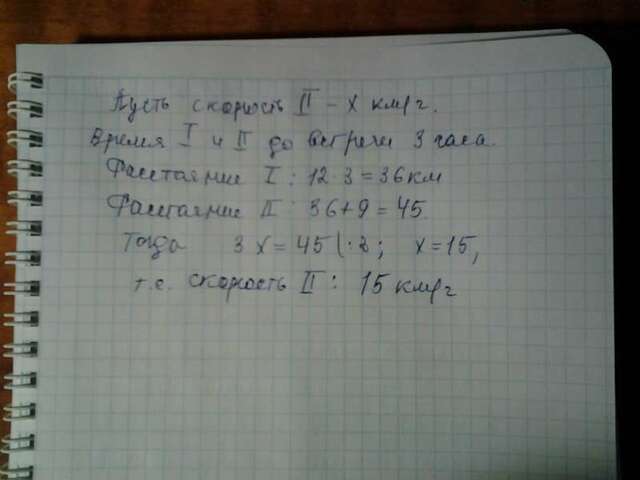 Пусть скорость II – x км/ч.
Время I и II до встречи 3 часа.
Расстояние I: 12·3=36км
Расстояние II: 36+9=45
Тогда 3x=45 |:2; x=15,
т.е. скорость II: 15 км/ч